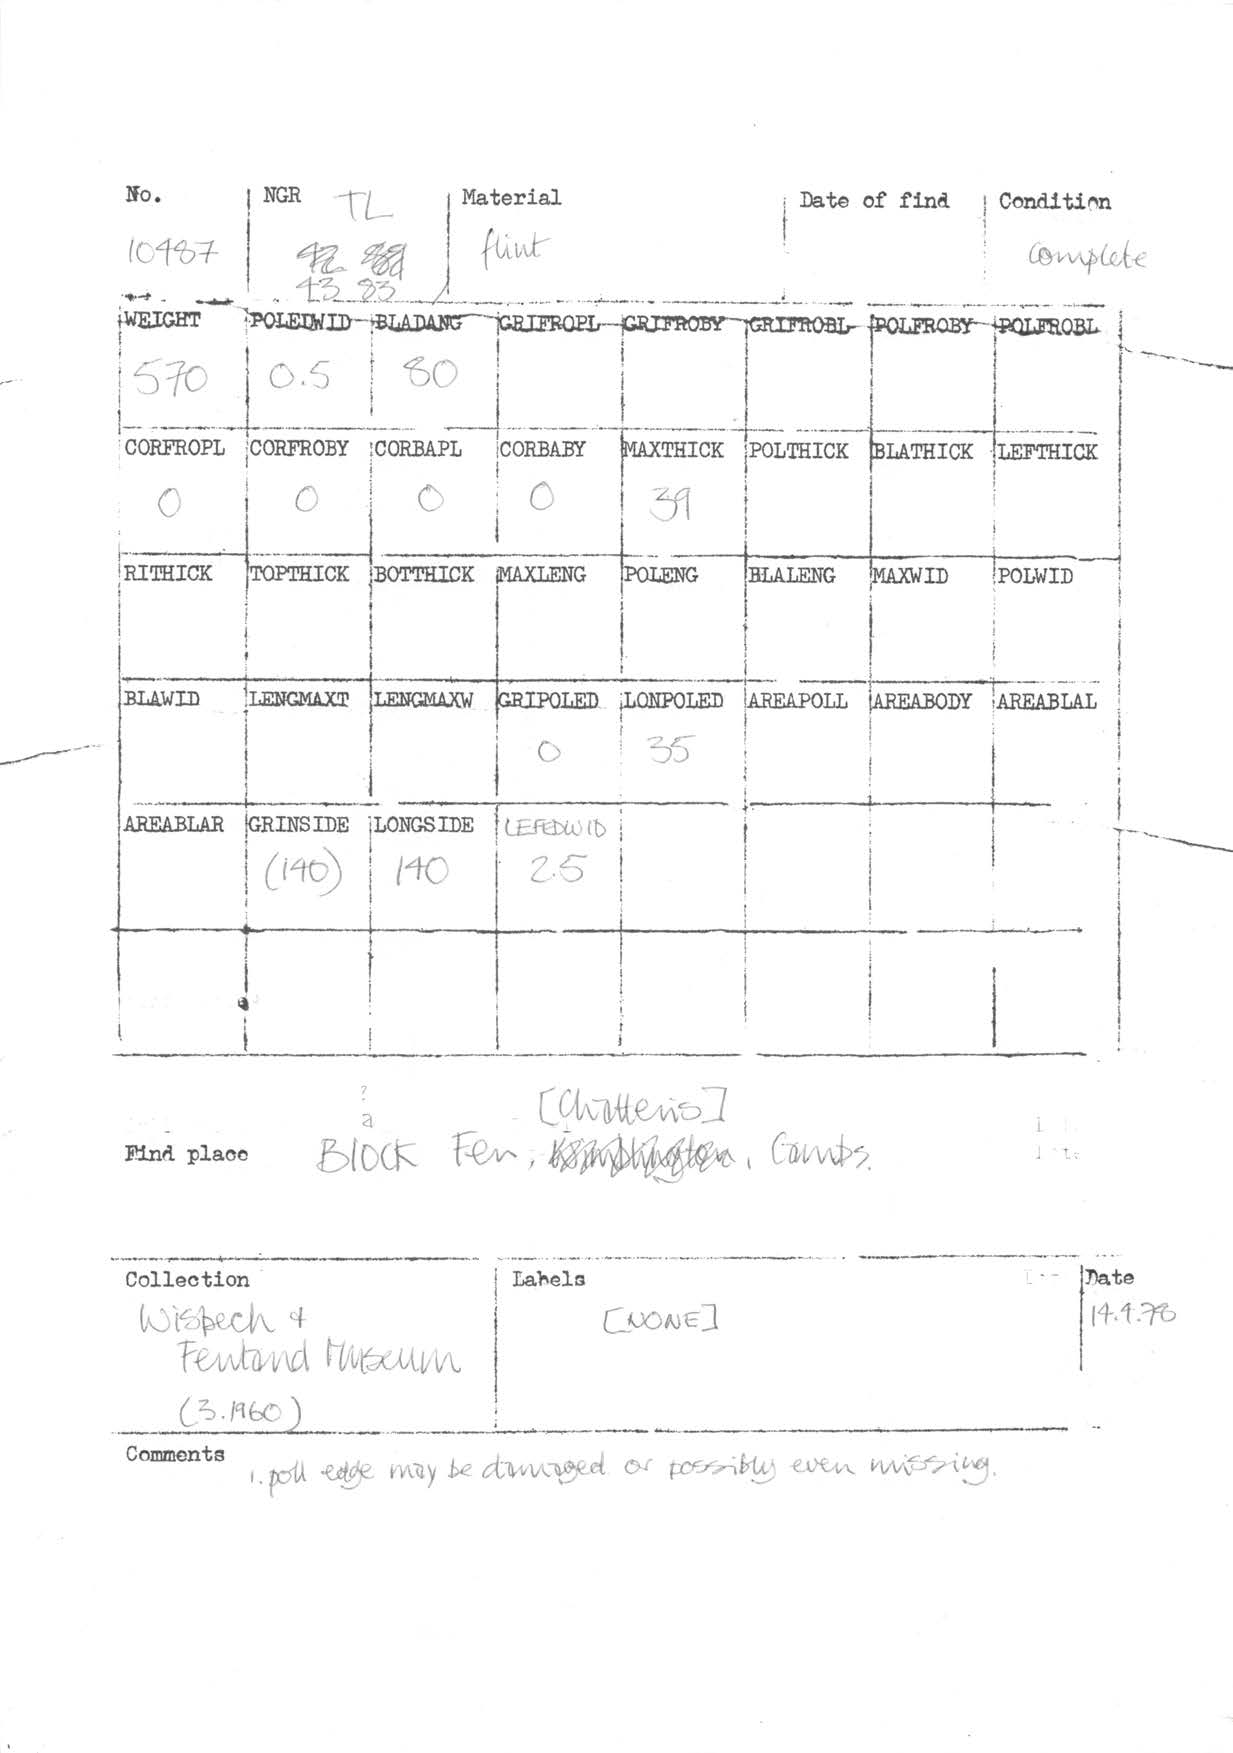 No. NGR TL Material Date of find Condition
10487 flint complete
43 83
WEIGHT POLEDWID BLADANG GRIFROPL GRIFROBY GRIFROBL POLFROBY POLFROBL
570 0.5 80
CORFROPL CORFROBY CORBAPL CORBABY MAXTHICK POLTHICK BLATHICK LEFTHICK
0 0 0 0 39
RITHICK TOPTHICK BOTTHICK MAXLENG POLENG BLALENG MAXWID POLWID
BLAWID LENGMAXT LENGMAXW GRIPOLED LONPOLED AREAPOLL AREABODY AREABLAL
0 35
AREABLAR GRINSIDE LONGSIDE LEFEDWID
(140) 140 2.5
?
a [Chatteris]
Find place Block Fen, , Cambs.
Collection Labels Date
Wisbech & [NONE] 14.4.78
Fenland Museum
(3.1960)
Comments 1. poll edge may be damaged or possibly even missing.